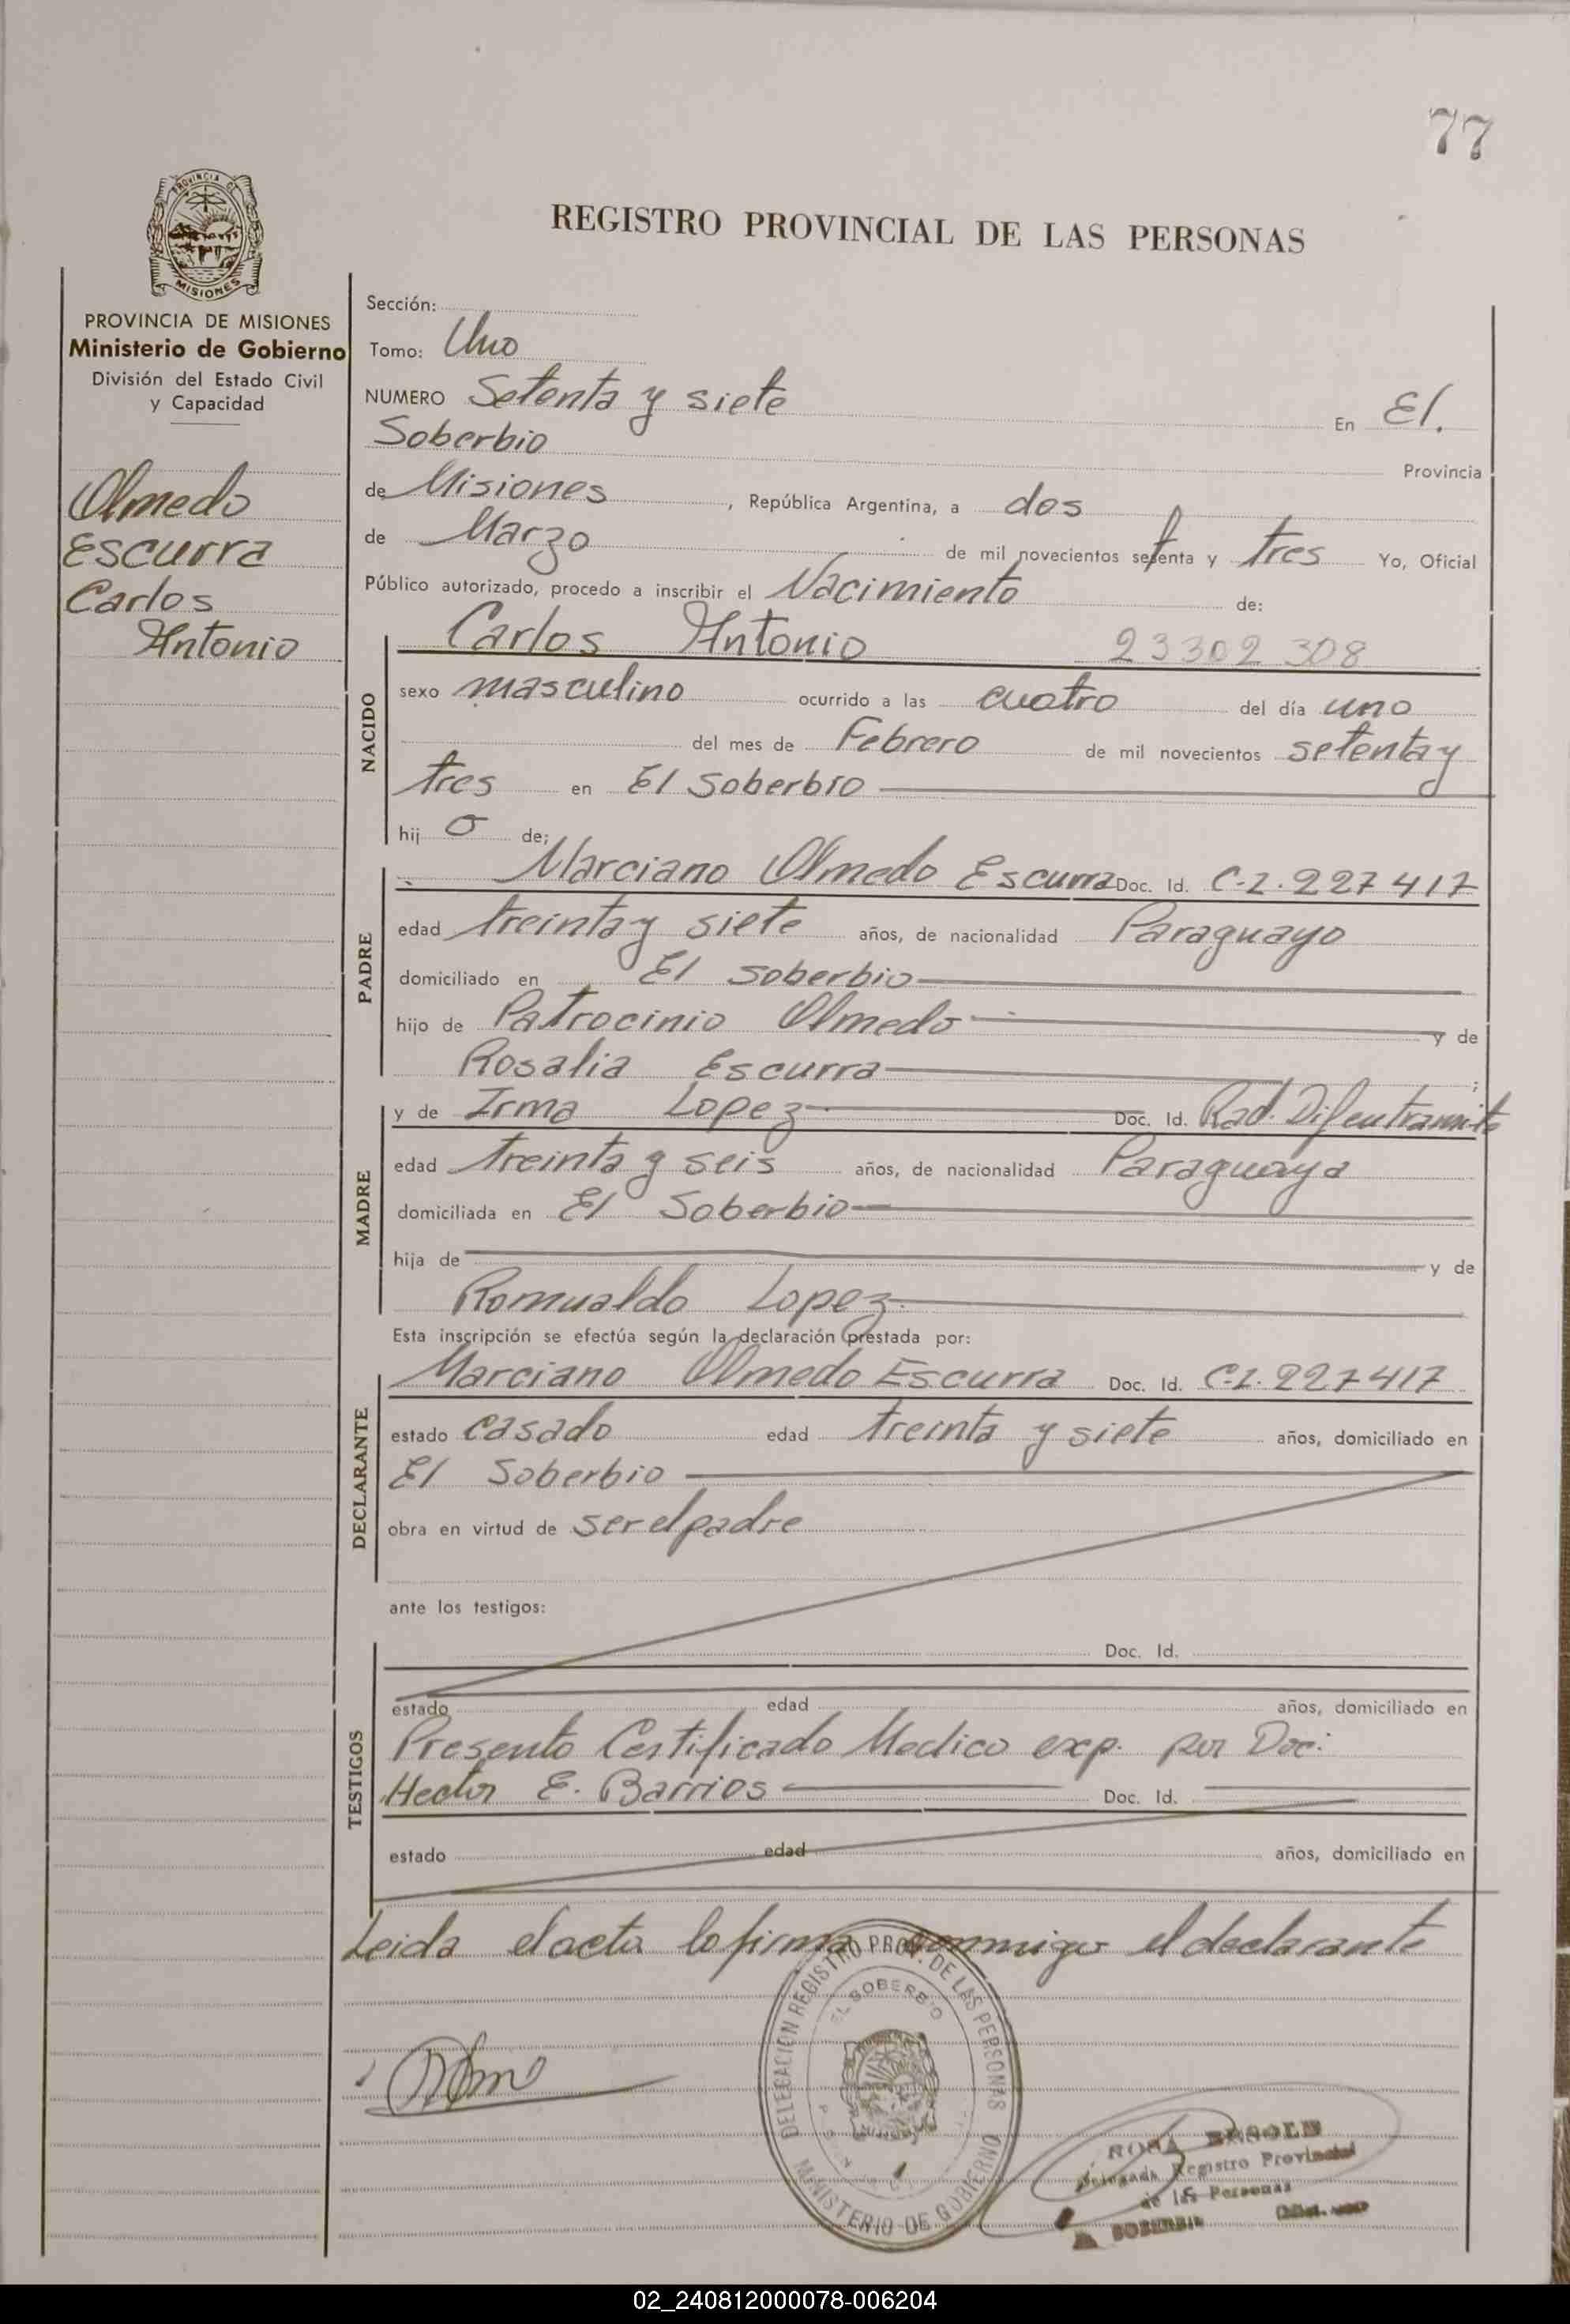 77
PROVINCIA DE
MISIONES
REGISTRO PROVINCIAL DE LAS PERSONAS
PROVINCIA DE MISIONES
Ministerio de Gobierno
División del Estado Civil
y Capacidad
Olmedo
Escurra
Carlos
Antonio
Sección:
Tomo: Uno
NUMERO Setenta y siete En El.
Soberbio Provincia
de Misiones, República Argentina, a dos
de Marzo de mil novecientos setenta y tres Yo, Oficial
Público autorizado, procedo a inscribir el Nacimiento de:
NACIDO
Carlos Antonio 23302308
sexo masculino ocurrido a las cuatro del día uno
del mes de Febrero de mil novecientos setenta y
tres en El Soberbio
hij o de:
PADRE
Marciano Olmedo Escurra Doc. Id. C.I. 227417
edad treinta y siete años, de nacionalidad Paraguayo
domiciliado en El Soberbio
hijo de Patrocinio Olmedo y de
Rosalia Escurra ;
MADRE
y de Irma Lopez Doc. Id. Rad. Dif en tramite
edad treinta y seis años, de nacionalidad Paraguaya
domiciliada en El Soberbio
hija de y de
Romualdo Lopez
Esta inscripción se efectúa según la declaración prestada por:
DECLARANTE
Marciano Olmedo Escurra Doc. Id. C.I. 227417
estado casado edad treinta y siete años, domiciliado en
El Soberbio
obra en virtud de ser el padre
ante los testigos:
TESTIGOS
Doc. Id.
estado edad años, domiciliado en
Presento Certificado Medico exp. por Doc:
Hector E. Barrios Doc. Id.
estado edad años, domiciliado en
Leida el acta lo firma conmigo el declarante
DELEGACION REGISTRO PROV. DE LAS PERSONAS
EL SOBERBIO
MINISTERIO DE GOBIERNO
ROSA
Delegada Registro Provincial
de las Personas
SOBERBIO
02_240812000078-006204